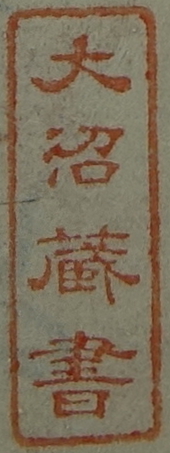 大沼蔵書